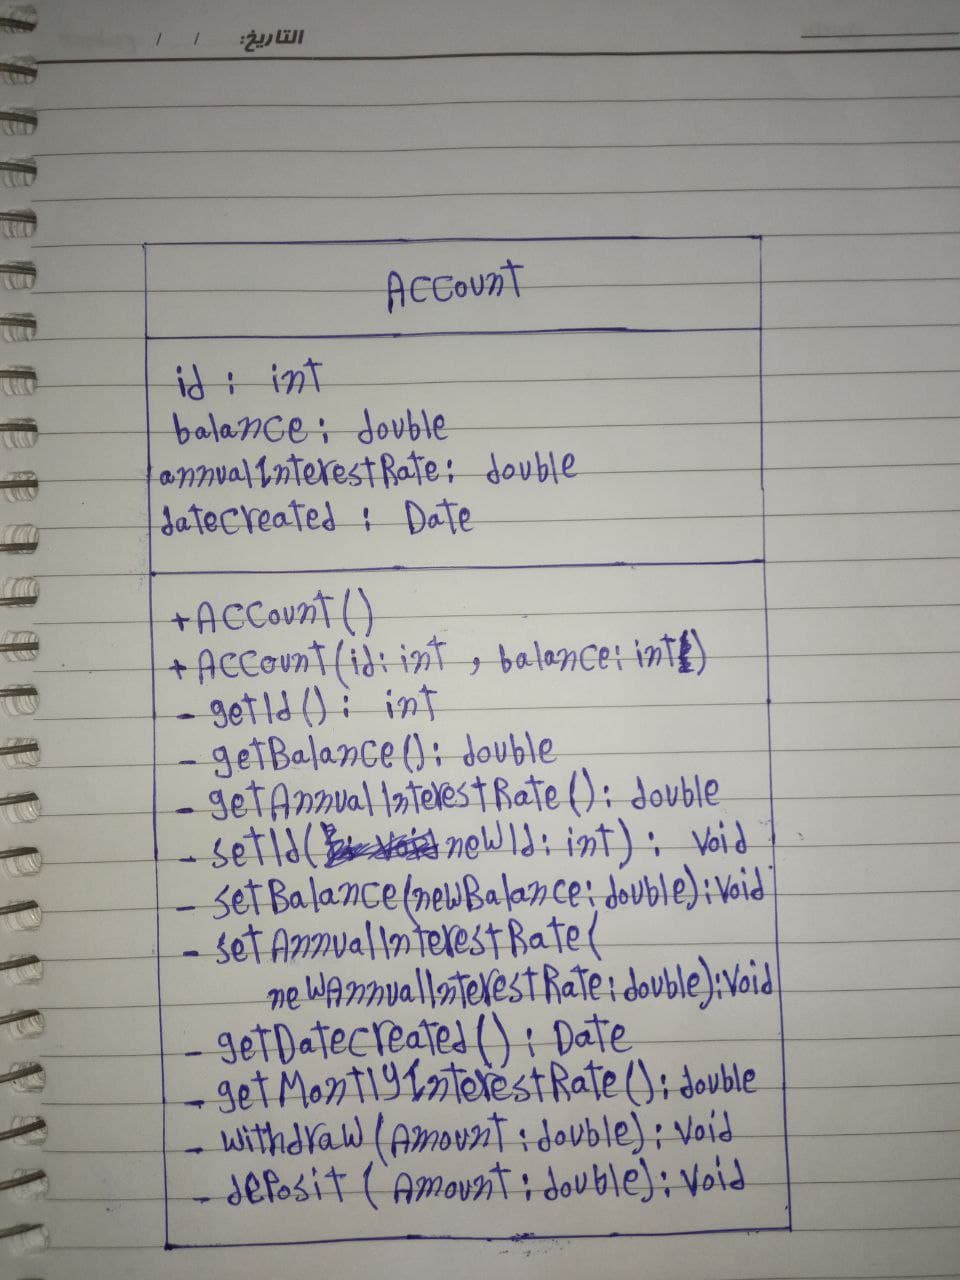 التاريخ: / /
Account
id : int
balance : double
annualInterestRate : double
datecreated : Date
+ Account()
+ Account(id: int , balance: int)
- getId() : int
- getBalance(): double
- getAnnualInterestRate(): double
- setId( newId: int) : Void
- setBalance(newBalance: double): Void
- setAnnualInterestRate(
newAnnualInterestRate: double): Void
- getDatecreated() : Date
- getMontlyInterestRate(): double
- withdraw (Amount : double): Void
- deposit ( Amount : double): Void